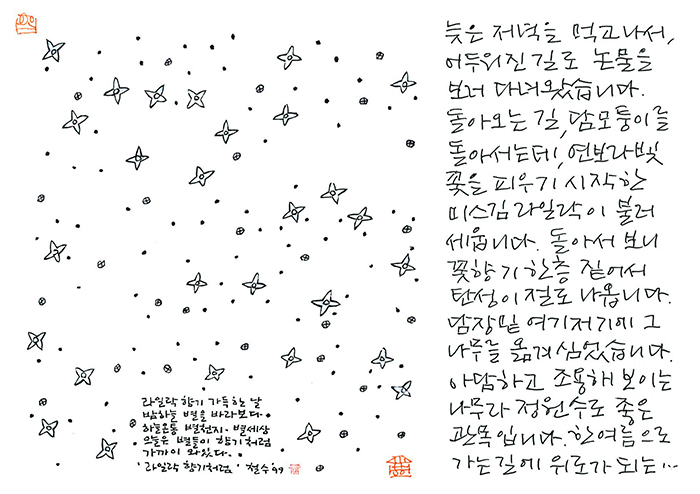 라일락 향기 가득하는 날
밤하늘 별을 바라보다.
하늘은통 별천지. 별세상
오늘은 별들이 향기처럼
가까이 와있다.
'라일락 향기처럼' 철수 '99
늦은 저녁을 먹고나서,
어두워진 길로 논물을
보러 다녀왔습니다.
돌아오는 길, 담모퉁이를
돌아서는데, 연보라빛
꽃을 피우기 시작한
미스김 라일락이 불러
세웁니다. 돌아서 보니
꽃향기 한층 짙어서
탄성이 절로 나옵니다.
담장밑 여기저기에 그
나무를 옮겨심었습니다.
아담하고 조용해 보이는
나무라 정원수로 좋은
관목입니다. 한여름으로
가는길에 위로가 되는...